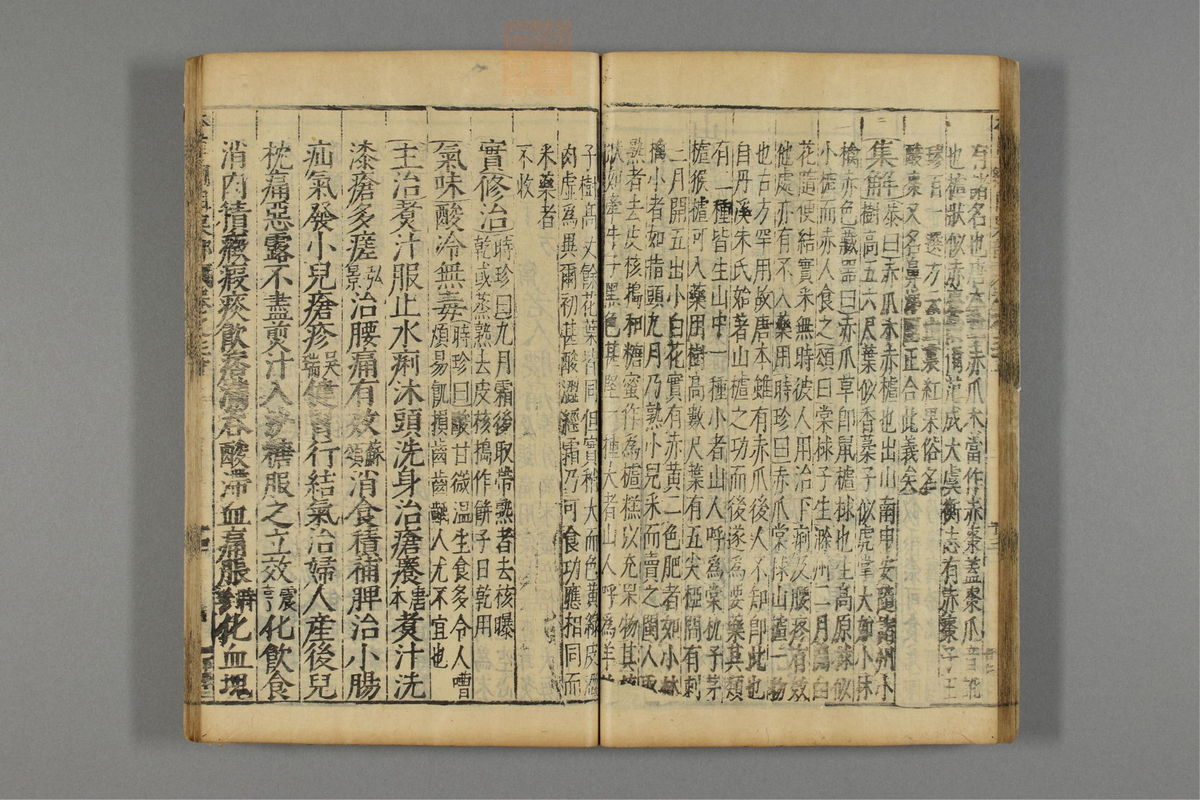 名也唐本赤爪木當作赤棗蓋棗爪音訛
也樝狀似赤棗故范成大虞衡志有赤棗子王
璆百一選方云紅果俗名
酸棗又名鼻涕團正合此義矣
集解恭曰赤爪木赤樝也出山南申安隨諸州小
樹高五六尺葉似香葇子似虎掌大如小林
檎赤色藏器曰赤爪草即鼠樝梂也生高原梂似
小樝而赤人食之頌曰棠梂子生滁州二月開白
花隨便結實采無時彼人用治下痢及腰疼有效
他處亦有不入藥用時珍曰赤爪棠梂山樝一物
也古方罕用故唐本雖有赤爪後人不知即此也
自丹溪朱氏始著山樝之功而後遂爲要藥其類
有二種皆生山中一種小者山人呼爲棠杋子茅
樝猴樝可入藥用樹高數尺葉有五尖椏間有刺
三月開五出小白花實有赤黃二色肥者如小林
檎小者如指頭九月乃熟小兒采而賣之閩人取
熟者去皮核搗和糖蜜作爲樝糕以充果物其核
狀如牽牛子黑色甚堅一種大者山人呼爲羊
子樹高丈餘花葉皆同但實稍大而色黃綠皮澀
肉虛爲異爾初甚酸澀經霜乃可食功應相同而
采藥者
不收
實修治時珍曰九月霜後取帶熟者去核曝
乾或蒸熟去皮核搗作餅子日乾用
氣味酸冷無毒時珍曰酸甘微溫生食多令人嘈
煩易飢損齒齒齲人尤不宜也
主治煑汁服止水痢沐頭洗身治瘡痒唐本煑汁洗
漆瘡多瘥弘景治腰痛有效蘇頌消食積補脾治小腸
疝氣發小兒瘡疹吳瑞健胃行結氣治婦人産後兒
枕痛惡露不盡煎汁入沙糖服之立效震亨化飲食
消肉積癥瘕痰飲痞滿吞酸滯血痛脹時珍化血塊